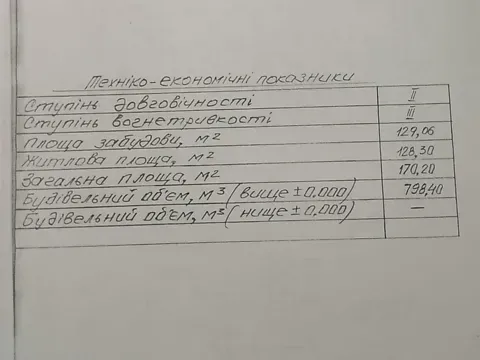 Техніко-економічні показники
Ступінь довговічності II
Ступінь вогнетривкості III
Площа забудови, м² 129,06
Житлова площа, м² 128,30
Загальна площа, м² 170,20
Будівельний об'єм, м³ (вище ±0.000) 798,40
Будівельний об'єм, м³ (нище ±0.000) —